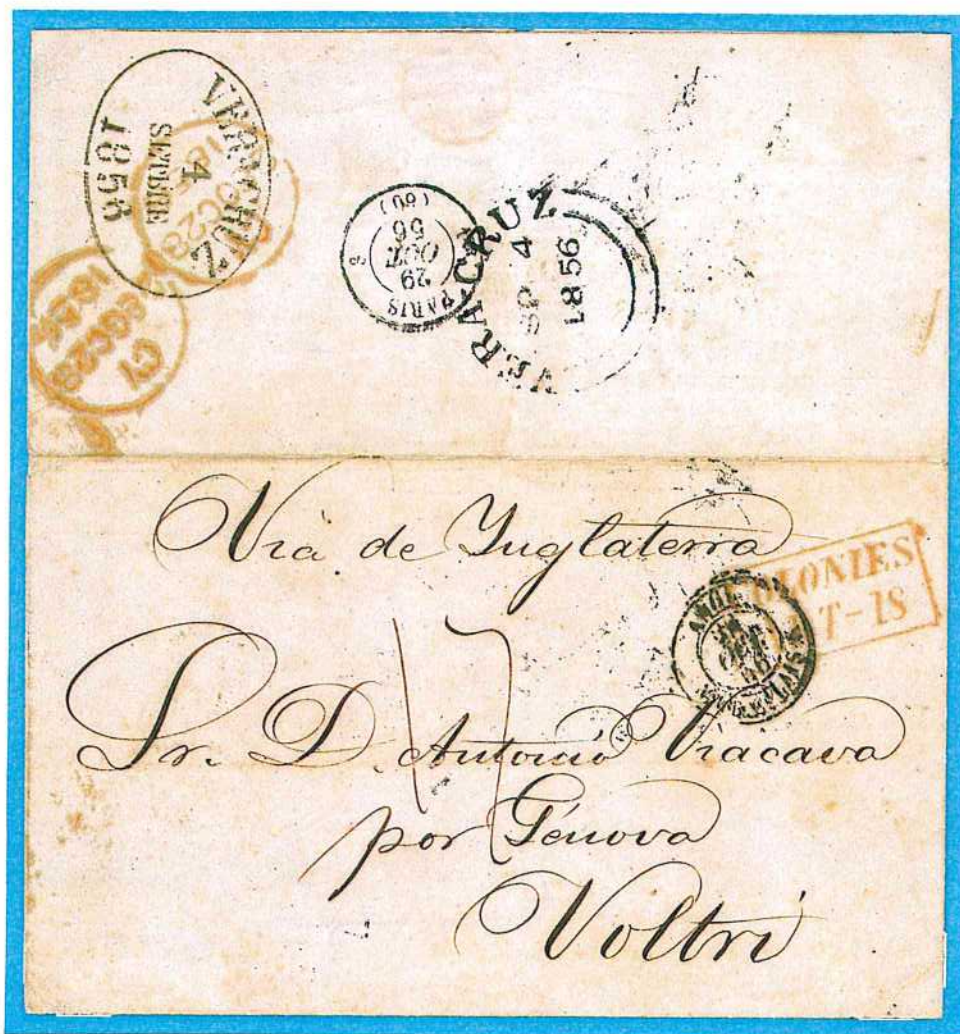 VERACRUZ
4
SETBRE
1856
OC28
C1
OC28
1856
PARIS
29
OCT.
56
(60)
VERA-CRUZ
SP 4
1856
Via de Inglaterra
COLONIES
T-18
ANGL.
OCT.
56
Sr. D. Antonio Vracava
17
por Génova
Voltri